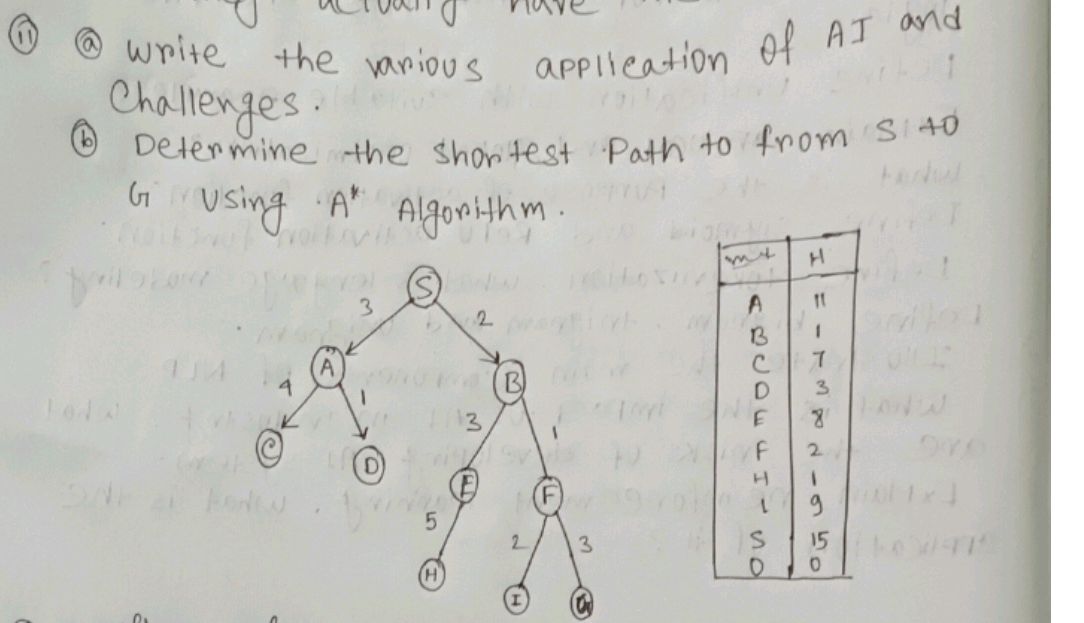 actually have
(ii) (a) Write the various application of AI and
Challenges.
(b) Determine the shortest Path to from S to
G using A* Algorithm.
S
3
2
A
B
4
1
3
1
C
D
E
F
5
2
3
H
I
H
A 11
B 1
C 7
D 3
E 8
F 2
H 1
I 9
S 15
0 0